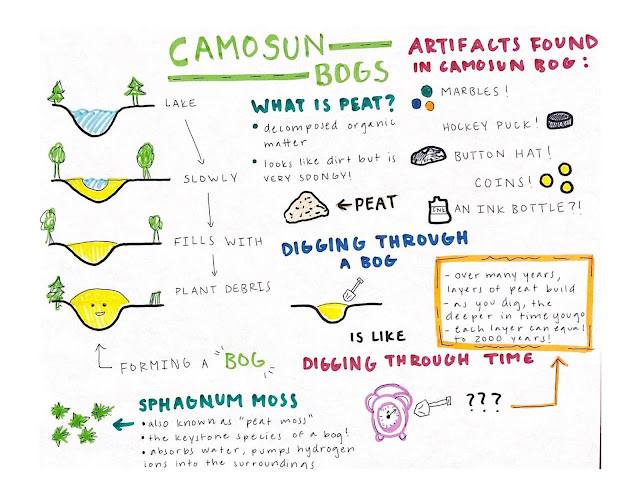 CAMOSUN
BOGS
LAKE
SLOWLY
FILLS WITH
PLANT DEBRIS
FORMING A "BOG"
WHAT IS PEAT?
• decomposed organic
matter
• looks like dirt but is
VERY SPONGY!
←PEAT
DIGGING THROUGH
A BOG
IS LIKE
DIGGING THROUGH TIME
???
ARTIFACTS FOUND
IN CAMOSUN BOG:
MARBLES!
HOCKEY PUCK!
BUTTON HAT!
COINS!
INK
AN INK BOTTLE?!
- over many years,
layers of peat build
- as you dig, the
deeper in time you go
- each layer can equal
to 2000 years!
SPHAGNUM MOSS
• also known as "peat moss"
• the keystone species of a bog!
• absorbs water, pumps hydrogen
ions into the surroundings